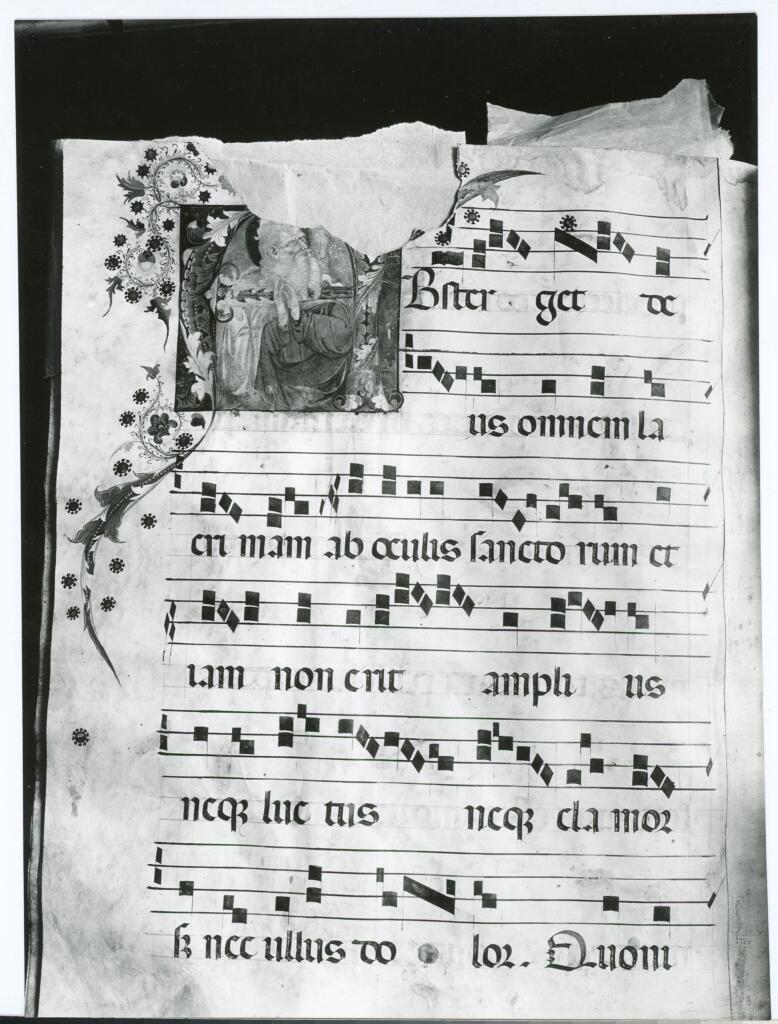 Bster get de
us omnem la
cri mam ab oculis sancto rum et
iam non erit ampli us
neqꝫ luc tus neqꝫ cla mor
sꝫ nec ullus do lor. Quoni